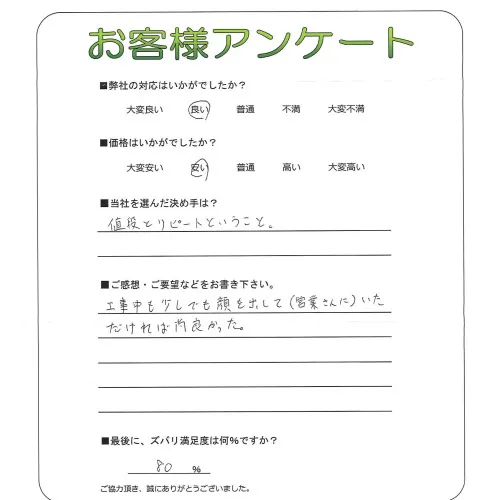 お客様アンケート
■弊社の対応はいかがでしたか？
大変良い 良い 普通 不満 大変不満
■価格はいかがでしたか？
大変安い 安い 普通 高い 大変高い
■当社を選んだ決め手は？
値段とリピートということ。
■ご感想・ご要望などをお書き下さい。
工事中も少しでも顔を出して(営業さんに)いた
だければ尚良かった。
■最後に、ズバリ満足度は何%ですか？
80 %
ご協力頂き、誠にありがとうございました。